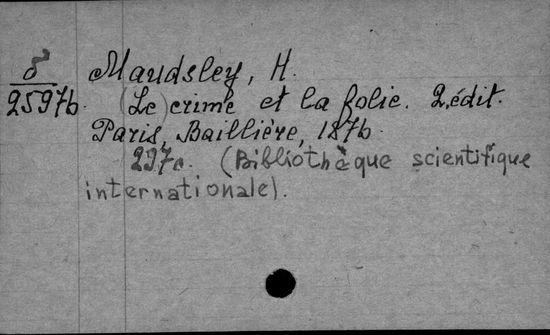 Maudsley, H.
25976. (Le) crime et la folie. 2.édit.
Paris, Baillière, 1876.
297c. (Bibliothèque scientifique
internationale).